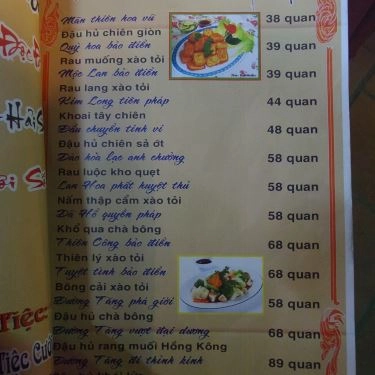 Mãn thiên hoa vũ 38 quan
Đậu hủ chiên giòn
Quỳ hoa bảo điển 39 quan
Rau muống xào tỏi
Mộc Lan bảo điển 39 quan
Rau lang xào tỏi
Kim Long tiên pháp 44 quan
Khoai tây chiên
Đẩu chuyển tinh vi 48 quan
Đậu hủ chiên sả ớt
Đào hỏa lạc anh chưởng 58 quan
Rau luộc kho quẹt
Lan Hoa phất huyệt thủ 58 quan
Nấm thập cẩm xào tỏi
Đả Hổ quyền pháp 58 quan
Khổ qua chà bông
Thiên Công bảo điển 68 quan
Thiên lý xào tỏi
Tuyệt tình bảo điển 68 quan
Bông cải xào tỏi
Đường Tăng phá giới 58 quan
Đậu hủ chà bông
Đường Tăng vượt đại dương 68 quan
Đậu hủ rang muối Hồng Kông
Đường Tăng đi thỉnh kinh 89 quan
TIỆC